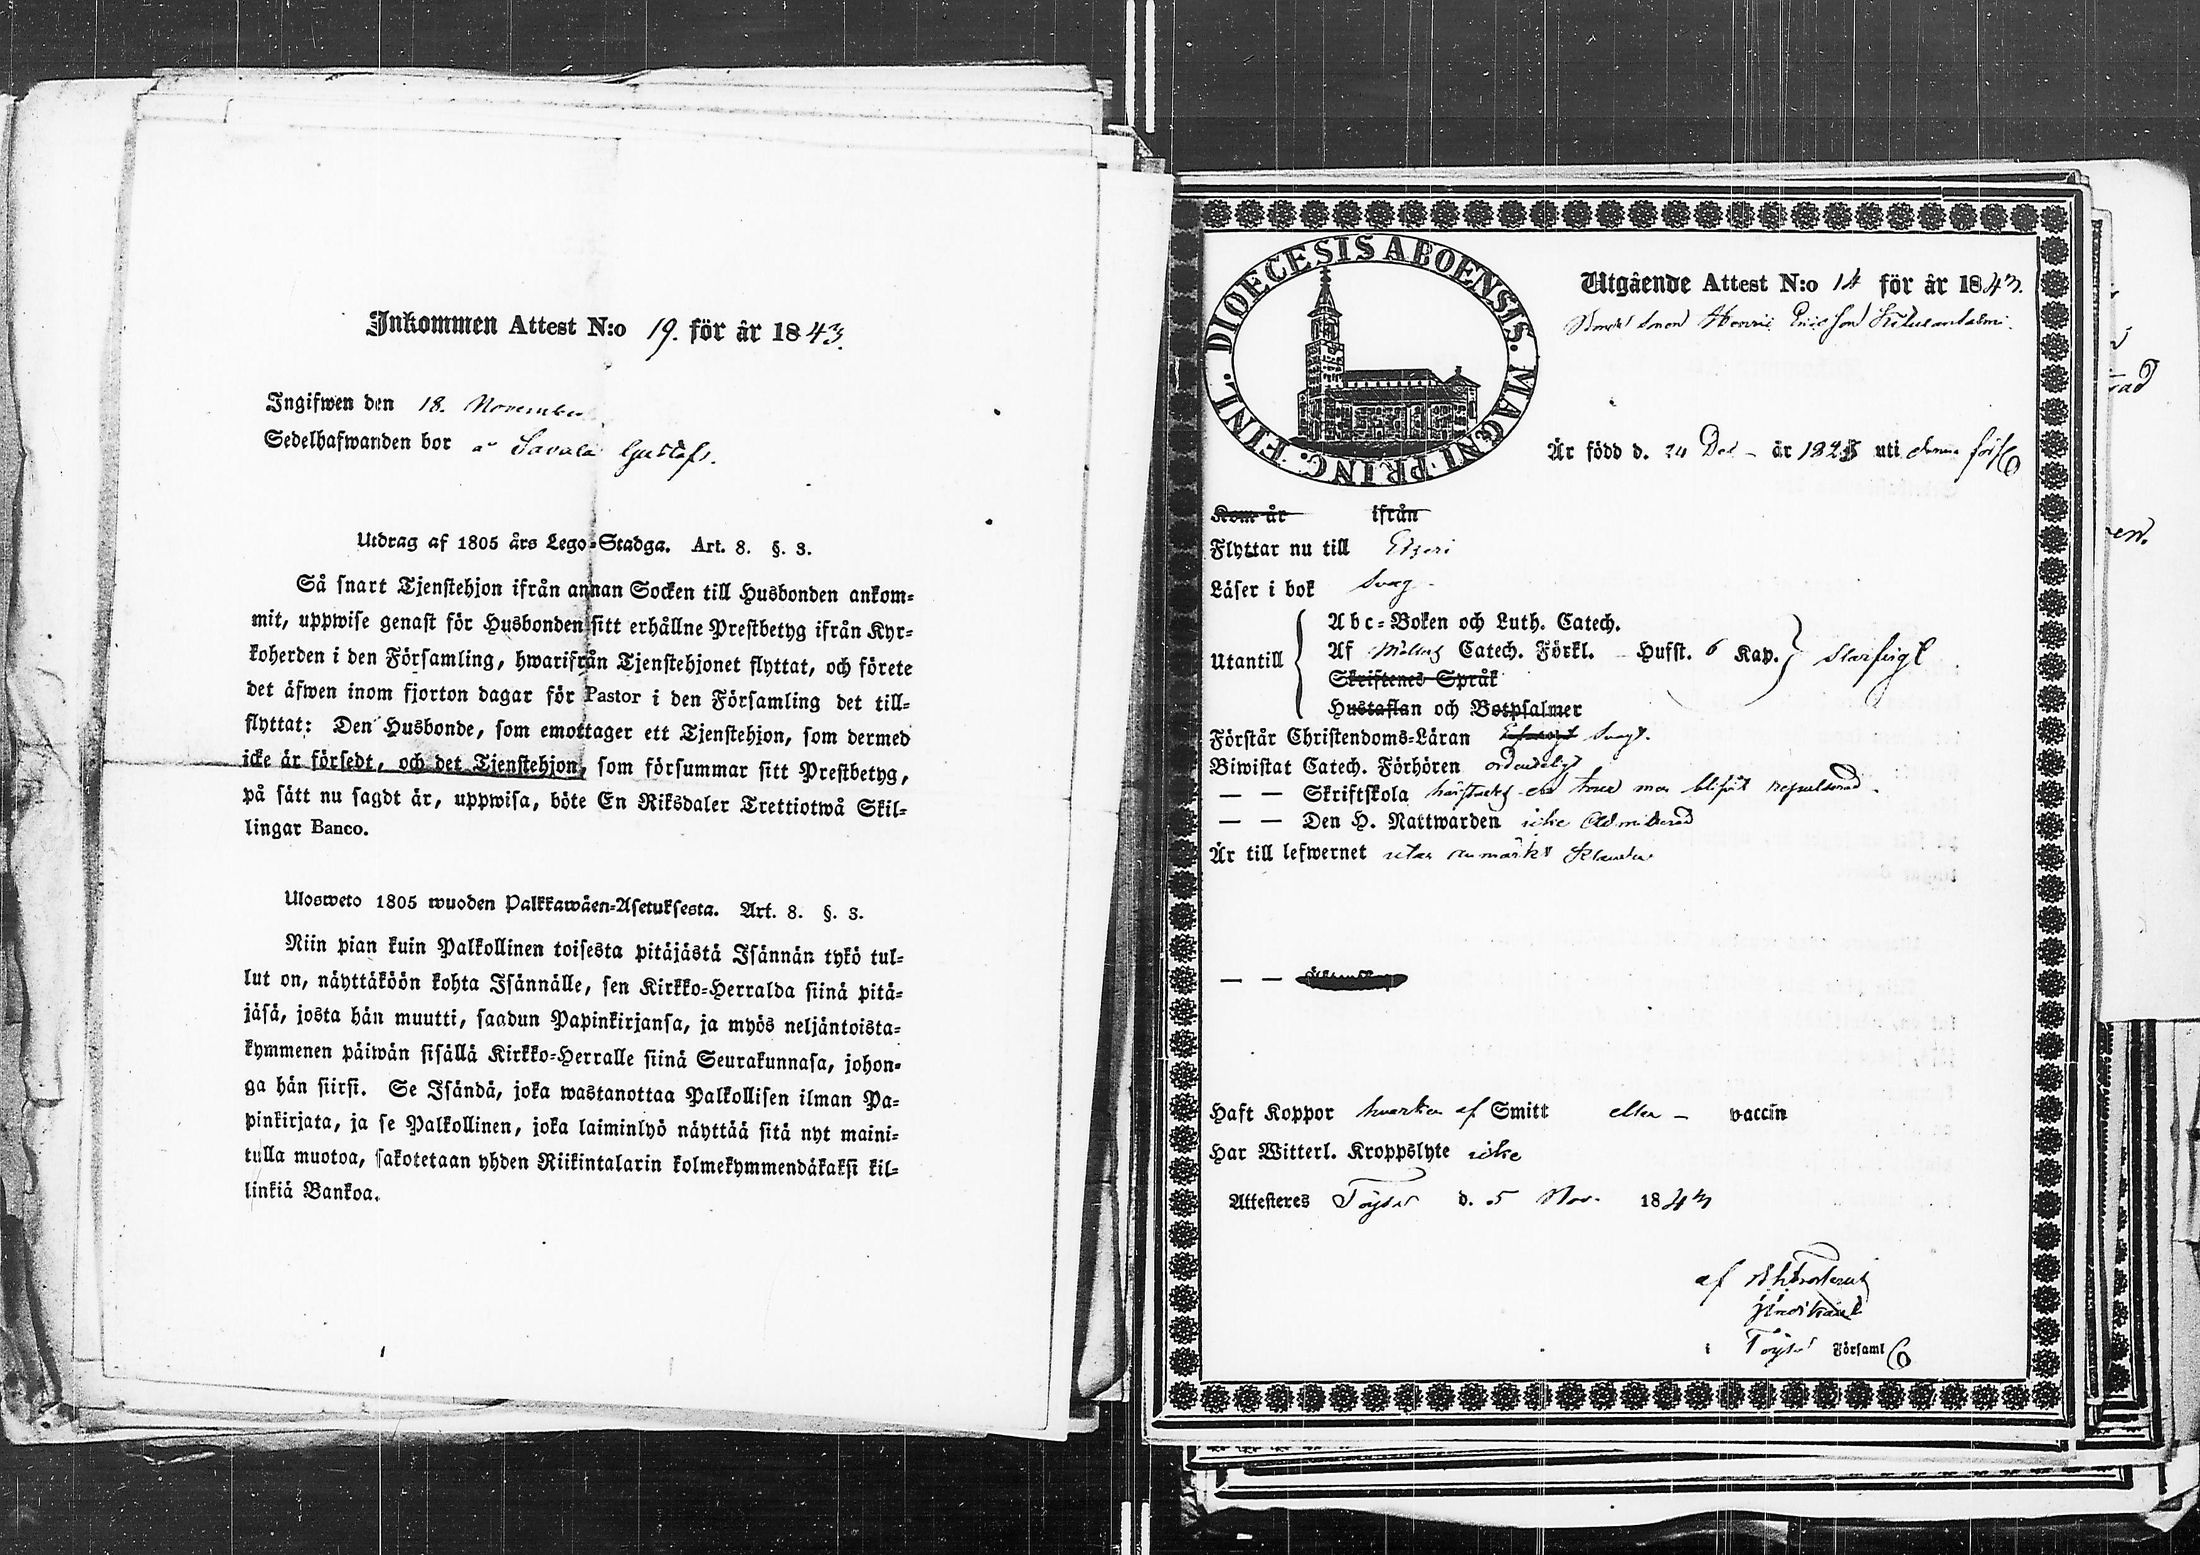 Inkommen Attest N:o 19. för år 1843.
Ingifwen den 18. November
Sedelhafwanden bor å Savala Gustafs.
Utdrag af 1805 års Lego-Stadga. Art. 8. §. 3.
Så snart Tjenstehjon ifrån annan Socken till Husbonden ankom-
mit, uppwise genast för Husbonden sitt erhållne Prestbetyg ifrån Kyr-
koherden i den Församling, hwarifrån Tjenstehjonet flyttat, och förete
det äfwen inom fjorton dagar för Pastor i den Församling det till-
flyttat: Den Husbonde, som emottager ett Tjenstehjon, som dermed
icke är försedt, och det Tjenstehjon, som försummar sitt Prestbetyg,
på sätt nu sagdt är, uppwisa, böte En Riksdaler Trettiotwå Skil-
lingar Banco.
Ulosweto 1805 wuoden Palkkawäen-Asetuksesta. Art. 8. §. 3.
Niin pian kuin Palkollinen toisesta pitäjästä Isännän tykö tul-
lut on, näyttäköön kohta Isännälle, sen Kirkko-Herralda siinä pitä-
jäsä, josta hän muutti, saadun Papinkirjansa, ja myös neljäntoista-
kymmenen päiwän sisällä Kirkko-Herralle siinä Seurakunnasa, johon-
ga hän siirsi. Se Isändä, joka wastanottaa Palkollisen ilman Pa-
pinkirjata, ja se Palkollinen, joka laiminlyö näyttää sitä nyt maini-
tulla muotoa, sakotetaan yhden Riikintalarin kolmekymmendäkaksi kil-
linkiä Bankoa.
DIOECESIS ABOENSIS. MAGNI PRINC. FINL.
Utgående Attest N:o 14 för år 1843.
Henric Ericsson
Är född d. 24 Dec år 1825 uti denna förs
Kom år ifrån
Flyttar nu till Etseri
Läser i bok svag
Utantill
Abc-Boken och Luth. Catech.
Af Catech. Förkl. Hufst. 6 Kap.
Skriftenes Språk
Hustaflan och Botpsalmer
Förstår Christendoms-Läran Svagt.
Biwistat Catech. Förhören ordentligt
— — Skriftskola
— — Den H. Nattwarden icke Admitterad
Är till lefwernet utan anmärkt
— —
Haft Koppor hvarken af Smitt eller – vaccin
Har Witterl. Kroppslyte icke
Attesteres Töysä d. 5 Nov. 1843
af
i Töysä Församl